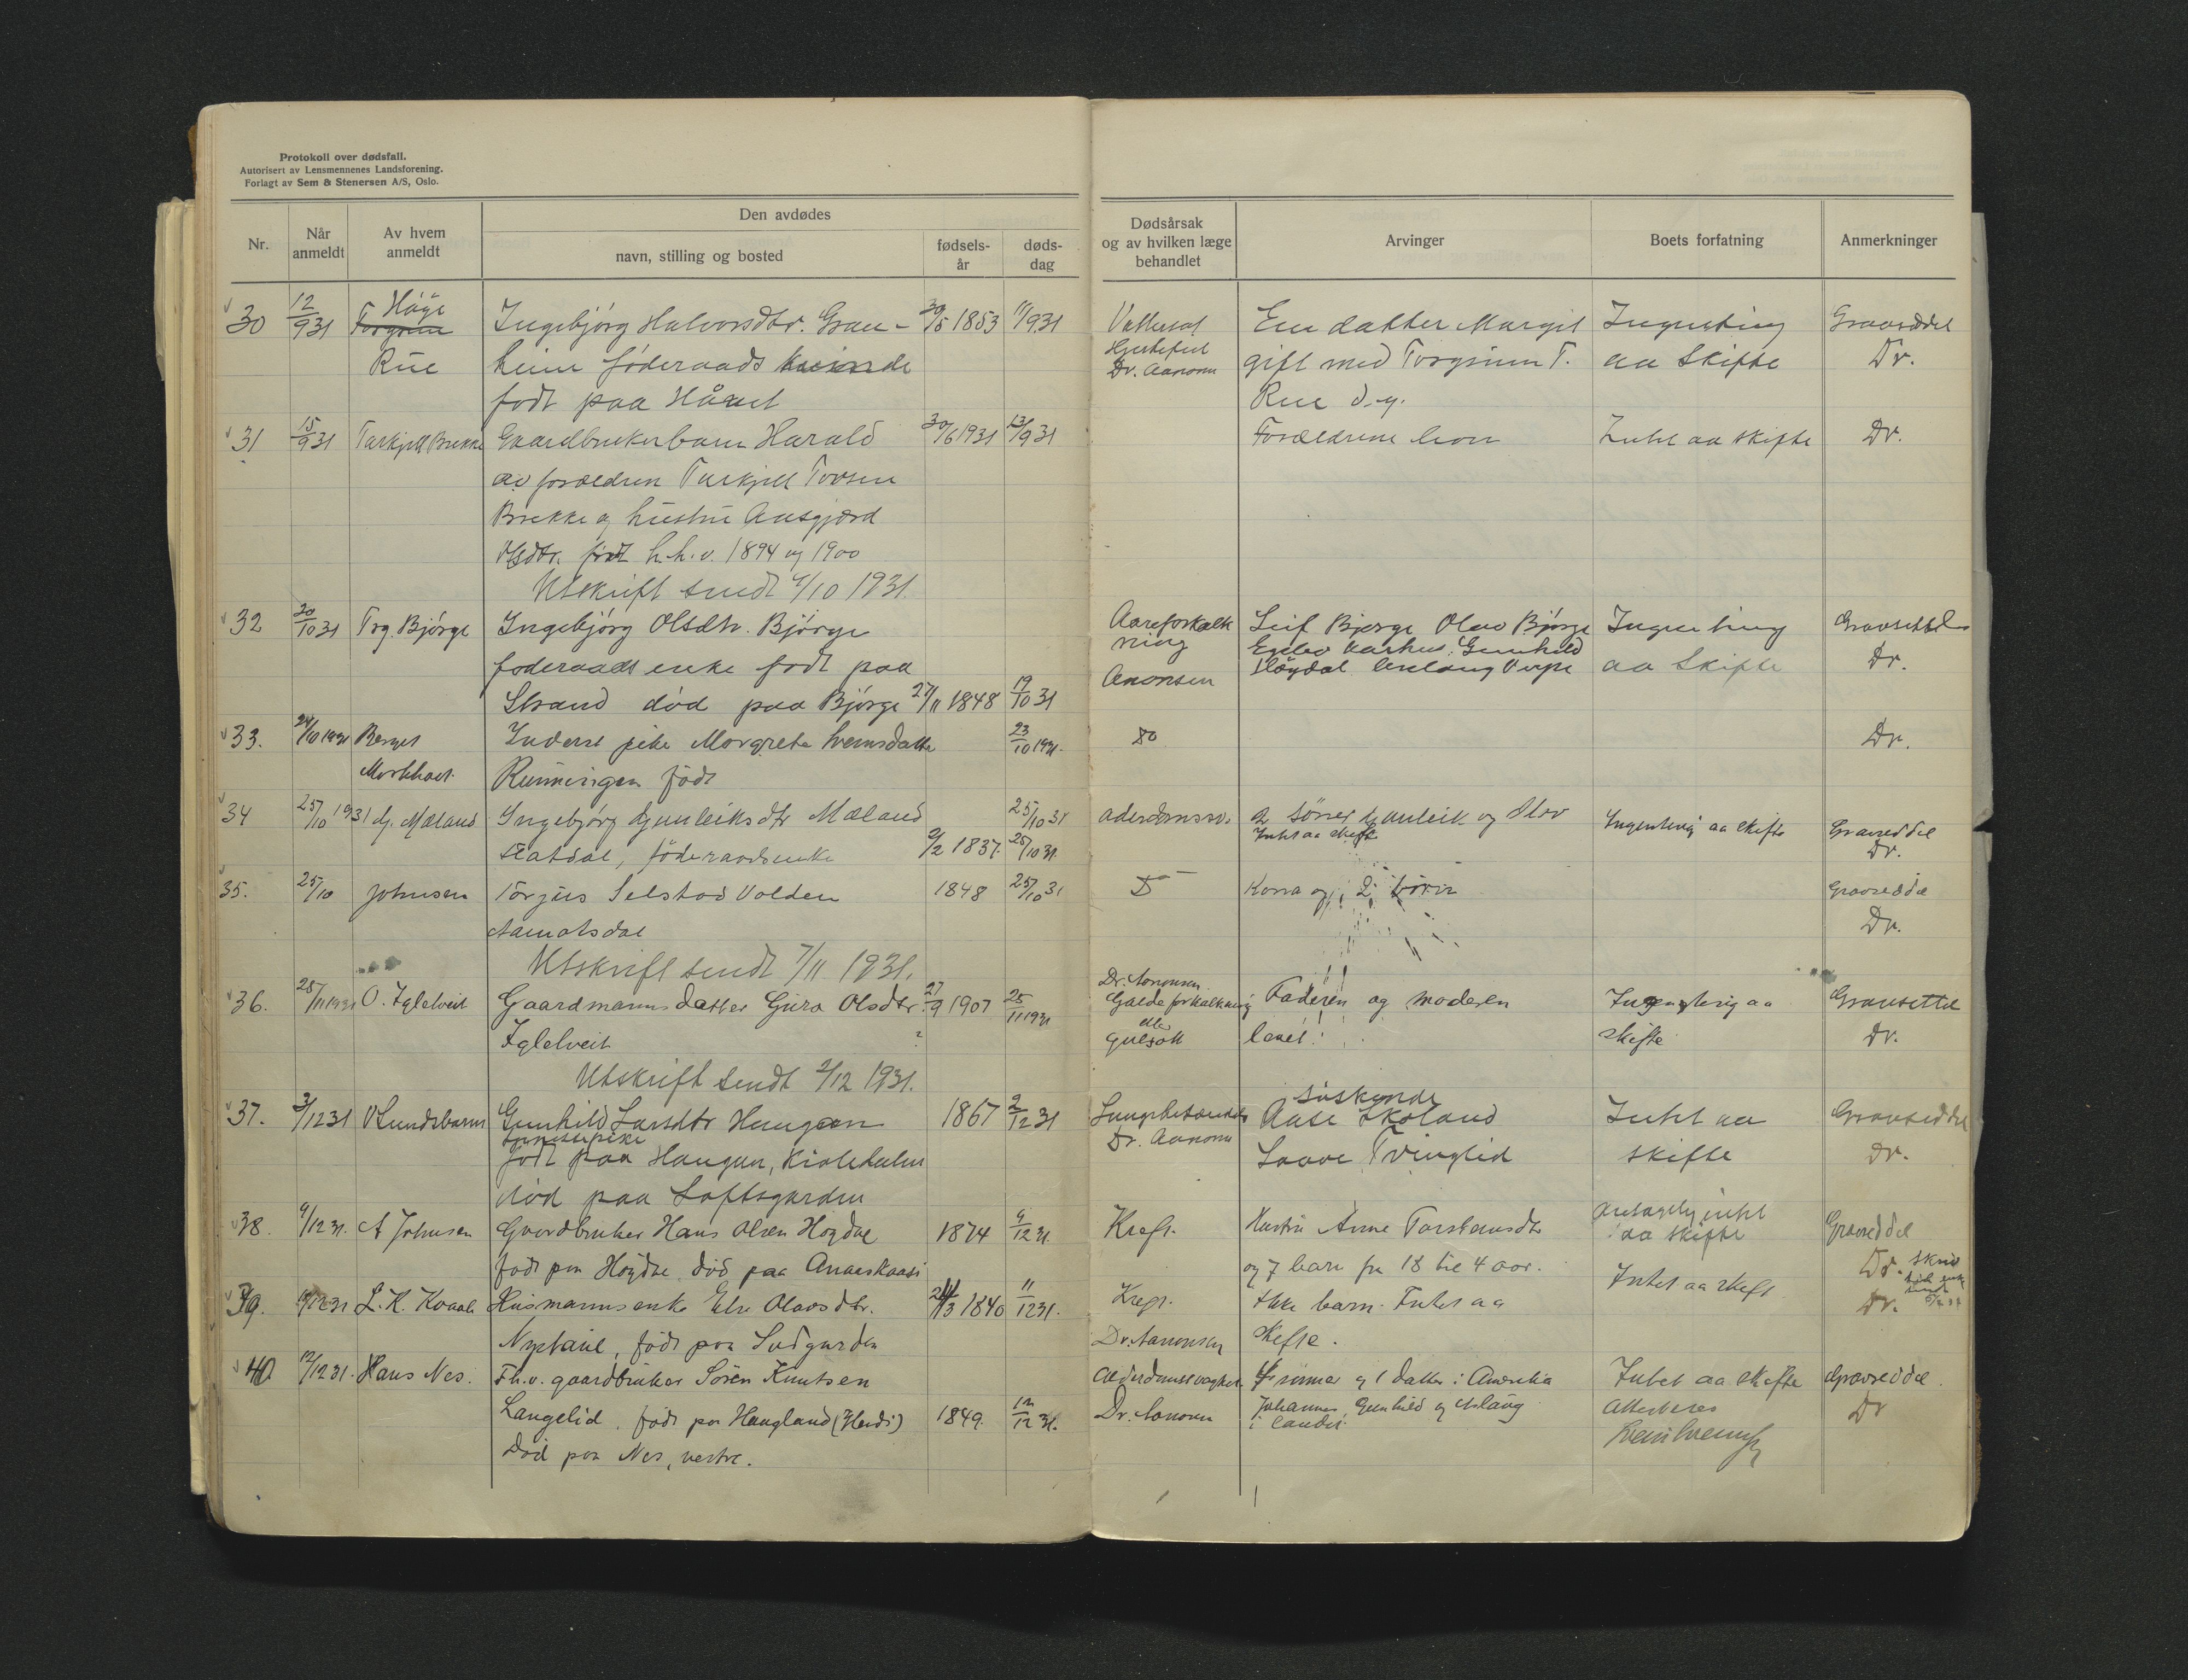 Protokoll over dødsfall.
Autorisert av Lensmennenes Landsforening.
Forlagt av Sem & Stenersen A/S, Oslo.
Nr.
Når anmeldt
Av hvem anmeldt
Den avdødes
navn, stilling og bosted
fødsels-år
døds-dag
Dødsårsak og av hvilken læge behandlet
Arvinger
Boets forfatning
Anmerkninger
30 12/9 31 Høge Ingebjørg Halvorsdtr. Grau- 30/5 1853 11/9 31 Vattersot En datter Margit Ingenting Gravseddel
Rue heim føderaads kvinde Hjertefeil Dr. Aanonsen gift med Torgrim T. aa skifte Dr.
født paa Rue d.y.
31 15/9 31 Tarkjell Brekke Gaardbrukerbarn Harald 30/6 1931 13/9 31 Forældrene lever Intet aa skifte Dr.
av forældren Tarkjell Tovsen
Brekke og hustru Aasgjerd
født h.h.v. 1894 og 1900
Utskrift sendt /10 1931.
32 20/10 31 Trg. Bjørge Ingebjørg Olsdtr. Bjørge Aareforkalkning Leif Bjørge Olav Bjørge Ingenting Gravseddel
føderaads enke født paa Aarhus, Gunhild aa skifte Dr.
Strand død paa Bjørge 27/11 1848 19/10 31 Aanonsen Høydal Aslaug
33. 24/10 1931 Berget Inderst pike Margrete Sveinsdatter 23/10 1931. do Dr.
født
34 25/10 1931 G. Mæland Ingebjørg Gunleiksdtr Mæland 25/10 31 2 sønner Gunleik og Olav Ingenting aa skifte Gravseddel
føderaadsenke 9/2 1837. 25/10 31. Intet aa skifte Dr.
35. 25/10 Johnsen Torjus Selstad Volden 1848 25/10 31 Kona og 2 børn Gravseddel
Aamotsdal Dr.
Utskrift sendt 7/11 1931.
36. 28/11 1931 O. Iglelveit Gaardmanns datter Guro Olsdtr. 27/9 1907 25/11 1931 Dr. Aanonsen Galdeforkalkning Faderen og moderen Ingenting aa Gravsettel
Iglelveit ? eller gulsott level skifte Dr.
Utskrift sendt 2/12 1931.
37. 3/12 31 V Lundsbarm Gunhild Larsdtr Haugen 1867 2/12 31 Lungebetændelse søskende Aase Skoland Intet aa Gravseddel
født paa Haugen, død paa Loftsgarden Dr. Aanonsen skifte Dr.
38. 9/12 31. A Johnsen Gaardbruker Hans Olsen Høydal 1874 9/12 31. Kreft. Hustru Anne Torstensdtr antagelig intet aa skifte Gravseddel
født paa Høydal død paa og 7 barn fra 18 til 4 aar. Dr.
39. 12/12 31 L. K. Kvaale Husmannsenke Elen Olavsdtr. 24/3 1840 11/12 31. Kreft. Ikke barn. Intet aa Intet aa skifte Dr.
Nystaul, født paa Sudgarden Dr. Aanonsen skifte.
40 12/12 31. Hans Nes. Fh.v. gaardbruker Søren Knutsen Alderdomssvaghet 4 sønner og 1 datter i Amerika Intet aa skifte Gravseddel.
Langelid. født paa Haugland 1849. 12/12 31. Dr. Aanonsen Johannes, Gunhild og Aslaug Attesteres Dr
Død paa Nes, vestre.